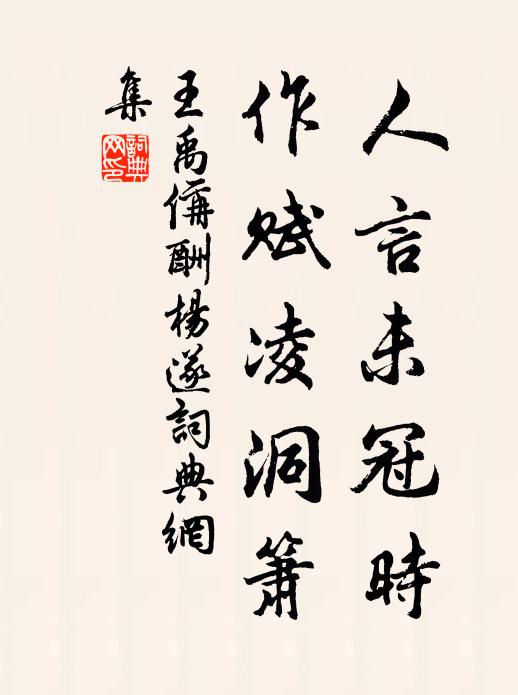 人言未冠時
作赋凌洞簫
王禹偁酬楊遂詞典網
集
詞典
网印